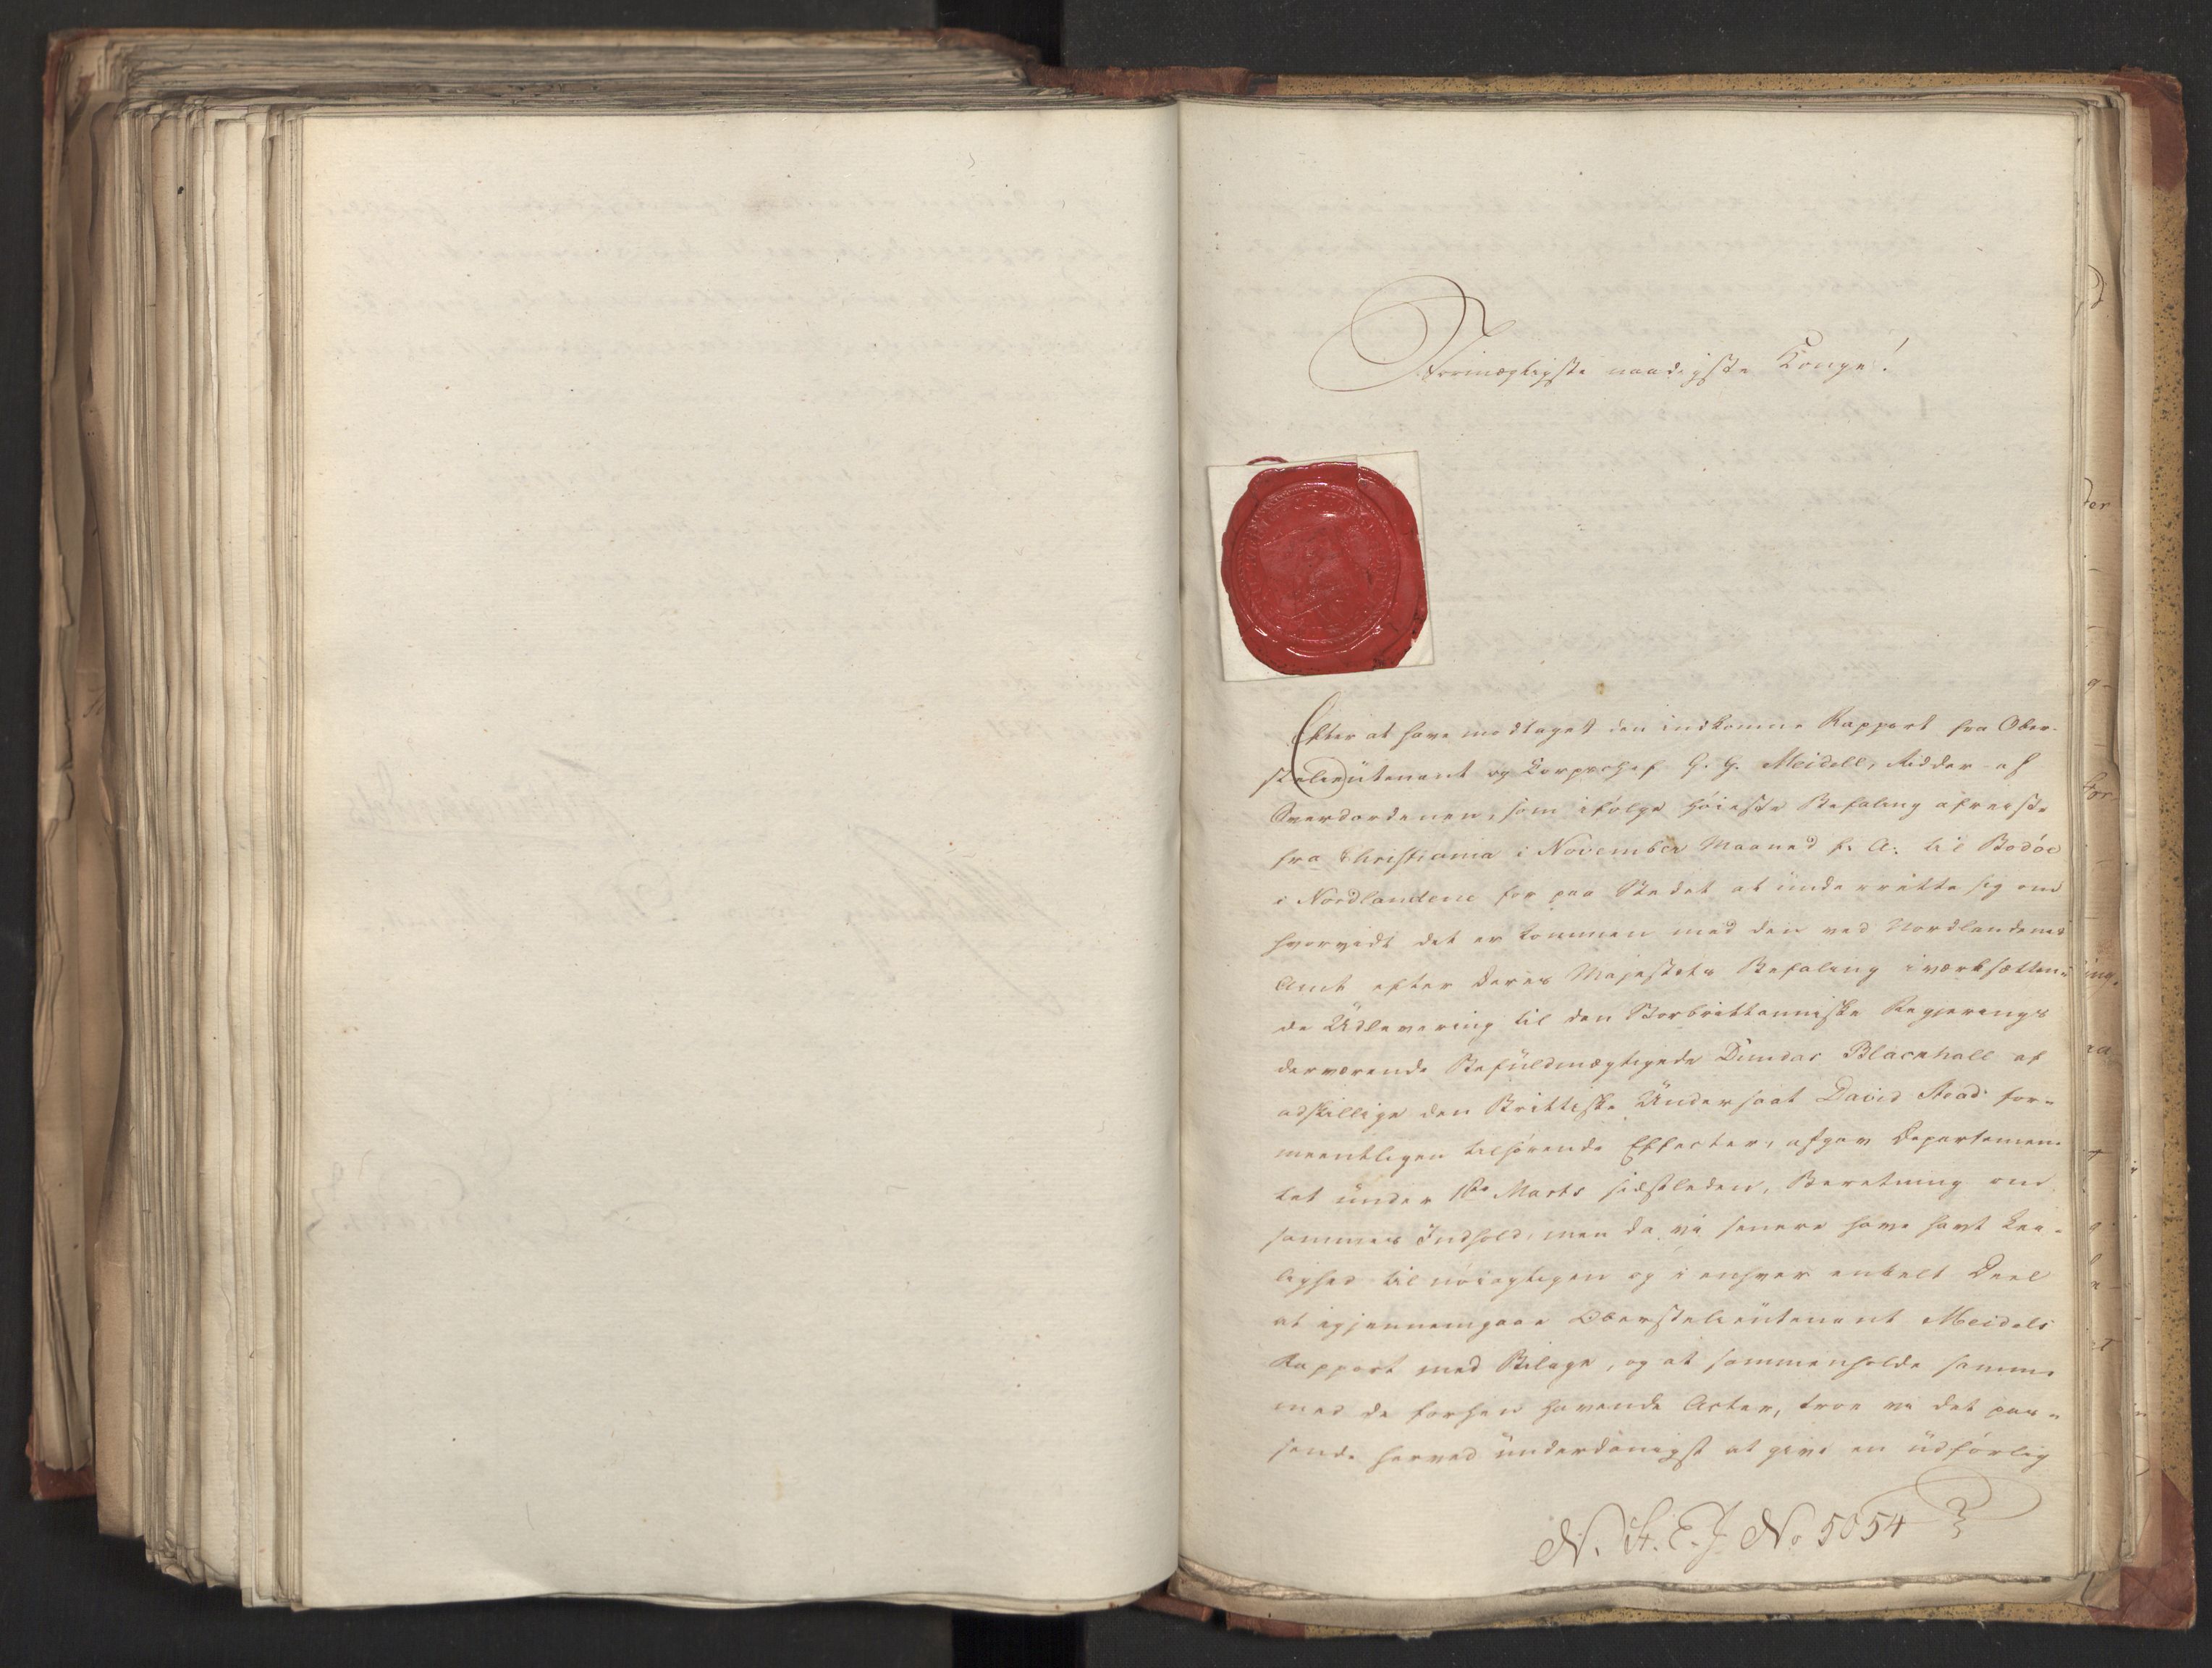 Stormægtigste naadigste Konge!
Efter at have modtaget den indkomne Rapport fra Ober-
stelieutenant og Corpschef G. G. Meidell, Ridder af
Sverdordenen, som ifølge høieste Befaling afreiste
fra Christiania i November Maaned f. A. til Bodöe
i Nordlandene for paa Stedet at underrette sig om
hvorvidt det er kommen med den ved Nordlandenes
Amt efter Deres Majestæts Befaling iværksætten-
de Udlevering til den Storbrittanniske Regjerings
derværende Befuldmægtigede Dundas Blacahall af
adskillige den Brittiske Undersaat David Stead for-
meentligen tilhörende Effecter, afgav Departemen-
tet under 1ste Marts sidstleden, Beretning om
sammes Indhold, men da vi senere have havt Lei-
lighed til nöiagtigen og i enhver enkelt Deel
at igjennemgaae Oberstelieutenant Meidels
Rapport med Bilage, og at sammenholde samme
med de forhen havende Acter, troe vi det pas-
sende herved underdanigst at give en udförlig
N. St. E. J. No 5054